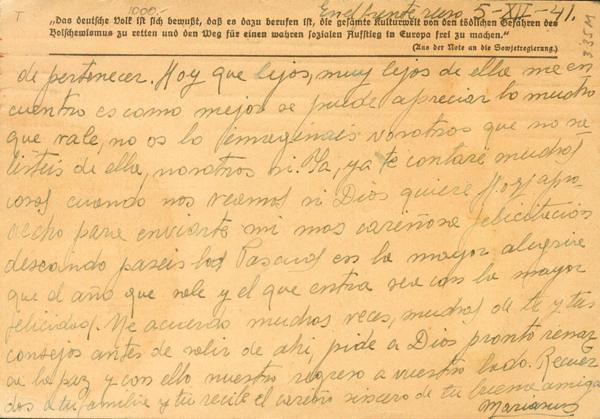 T 1000.-
En el frente ruso 5-XII-41.
„Das deutsche Volk ist sich bewußt, daß es dazu berufen ist, die gesamte Kulturwelt von den tödlichen Gefahren des
Bolschewismus zu retten und den Weg für einen wahren sozialen Aufstieg in Europa frei zu machen.“
(Aus der Note an die Sowjetregierung.)
335M
de pertenecer. Hoy que lejos, muy lejos de ella me en
cuentro es como mejor se puede apreciar lo mucho
que vale, no os lo imaginais vosotros que no sa
listeis de ella, nosotros si. Ya, ya te contaré muchas
cosas cuando nos veamos si Dios quiere. Hoy apro
vecho para enviarte mi mas cariñosa felicitación
deseando paseis las Pascuas en la mayor alegria
que el año que sale y el que entra sea con la mayor
felicidad. Me acuerdo muchas veces, muchas de ti y tus
consejos antes de salir de ahi, pide a Dios pronto renaz
ca la paz y con ello nuestro regreso a vuestro lado. Recuer
dos a tu familia y tu recibe el cariño sincero de tu buena amiga